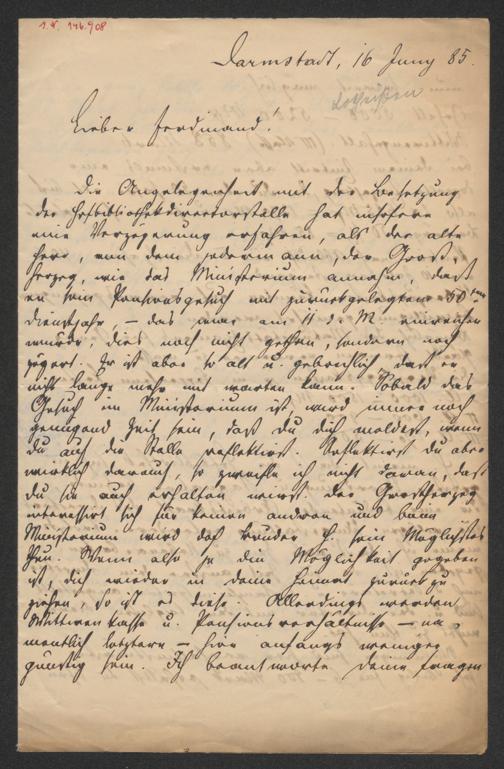 I.N. 146.908
Darmstadt, 16 Juny 85.
Lotheißen
Lieber Ferdinand!
Die Angelegenheit mit der Besetzung
der Hofbibliothekdirectorstelle hat insofern
eine Verzögerung erfahren, als der alte
Herr, von dem jedermann, der Groß-
herzog, wie das Ministerium annahm, daß
er sein Pensionsgesuch mit zurückgelegtem 50
Dienstjahr, – das war am 11 d. M. einreichen
würde, dies noch nicht gethan, sondern noch
zögert. Er ist aber so alt u. gebrechlich, daß er
nicht lange mehr mit warten kann. Sobald das
Gesuch im Ministerium ist, wird immer noch
genügend Zeit sein, daß du dich meldest, wenn
du auf die Stelle reflektirst. Reflektirst du aber
wirklich darauf, so zweifle ich nicht daran, daß
du sie auch erhalten wirst. Der Großherzog
interessirt sich für keinen andren und beim
Ministerium wird doch Bruder H. sein Möglichstes
thun. Wenn also je die Möglichkeit gegeben
ist, dich wieder in deine Heimat zurück zu
ziehen, so ist es diese. Allerdings werden
Wittwenkasse u. Pensionsverhältnisse – na-
mentlich letztere – hier anfangs weniger
günstig sein. Ich beantworte deine Fragen